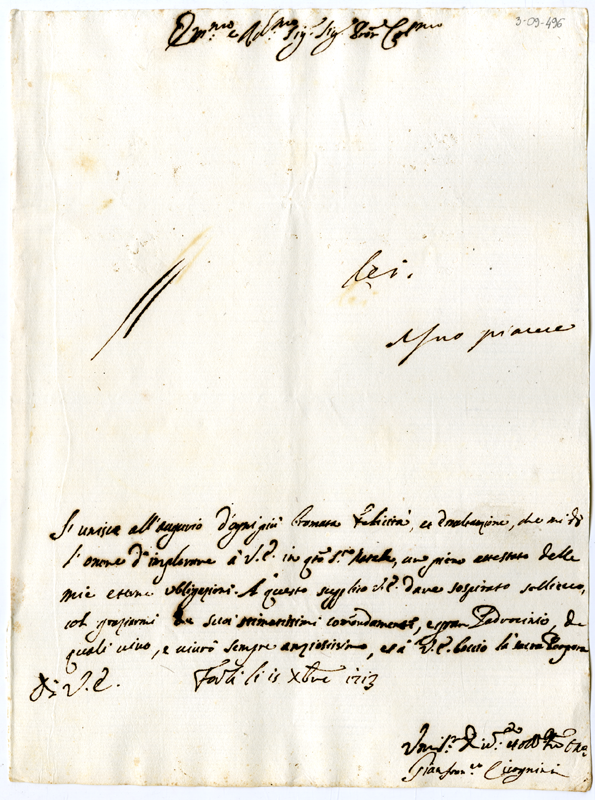 3-09-496
Em.mo e Rd.mo Sig.r Sig.r Pron Col.mo
lei.
A suo piacere
Si unisca all'augurio d'ogni più bramata felicità, et esaltazione, che mi dò
l'onore d'implorare à V.E. in q.to S.to Natale, un pieno attestato delle
mie eterne obligazioni. A questo supplico V.E. dare sospirato sollievo,
col graziarmi de suoi stimatissimi comandamenti, e gran Padrocinio, de
quali vivo, e viverò sempre anziosissimo, et à V.E. baccio la sacra Porpora
Di V.E. Forlì li 15 Xbre 1713
Um.
Gianfran.co Cicognini